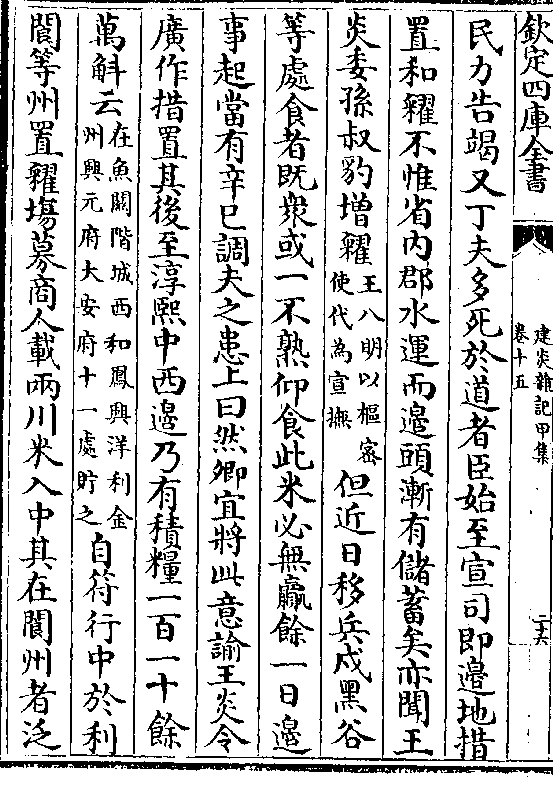 欽定四庫全書
建炎雜記甲集
卷十五
二六
民力告竭又丁夫多死於道者臣始至宣司即邉地措
置和糴不惟省内郡水運而邉頭漸有儲蓄矣亦聞王
炎委孫叔豹増糴王八明以樞宻使代為宣撫但近日移兵戍黑谷
等處食者既衆或一不熟仰食此米必無贏餘一日邉
事起當有辛巳調夫之患上曰然卿宜將此意諭王炎令
廣作措置其後至淳熙中西邉乃有積糧一百一十餘
萬斛云在魚闗階城西和鳳興洋利金州興元府大安府十一處貯之自符行中於利
閬等州置糴塲募商人載兩川米入中其在閬州者泛